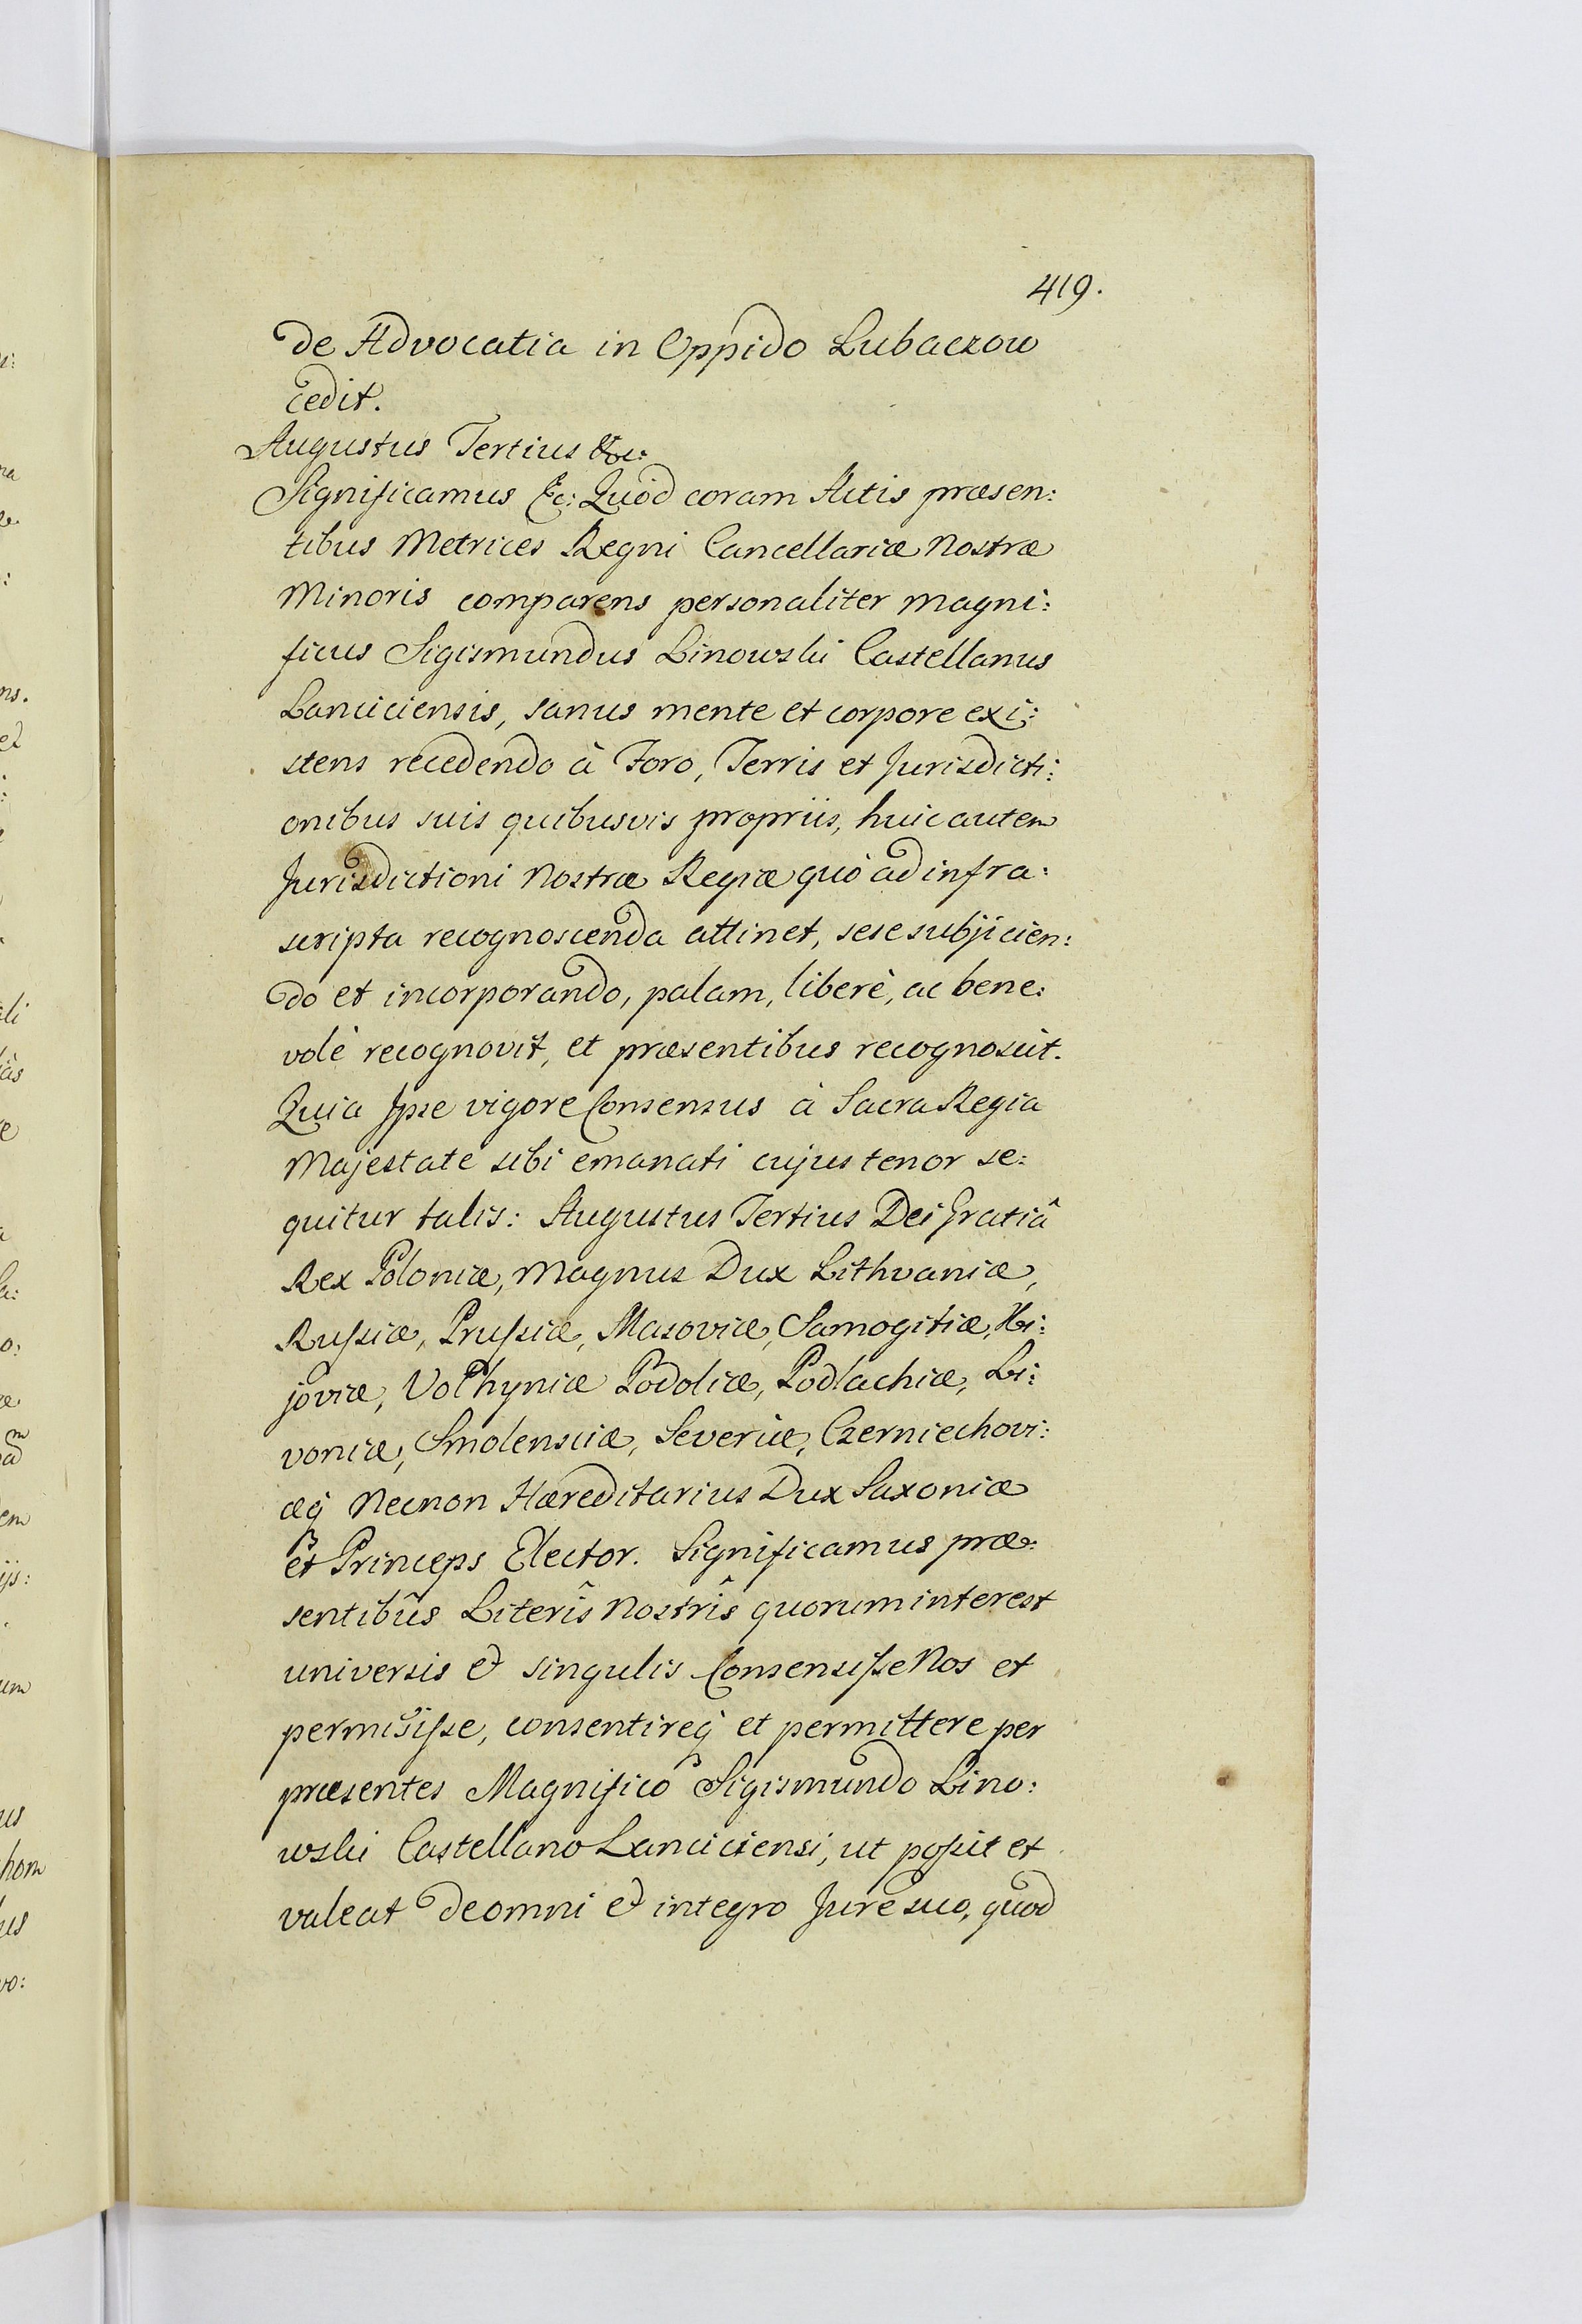 419.
de Advocatia in Oppido Lubaczow
cedit.
Augustus Tertius &c:
Significamus &c: Quòd coram Actis præsen:
tibus Metrices Regni Cancellariæ Nostræ
Minoris comparens personaliter Magni:
ficus Sigismundus Linowski Castellanus
Lanciciensis, sanus mente et corpore exi:
stens recedendo à Foro, Terris et Jurisdicti:
onibus suis quibusvis propriis, huic autem
Jurisdictioni Nostræ Regiæ quò ad infra:
scripta recognoscenda attinet, sese subjicien:
do et incorporando, palam, liberè, ac bene:
volè recognovit, et præsentibus recognoscit.
Quia Ipse vigore Consensus à Sacra Regia
Majestate sibi emanati cujus tenor se:
quitur talis: Augustus Tertius Dei Gratiâ
Rex Poloniæ, Magnus Dux Lithvaniæ,
Russiæ, Prussiæ, Masoviæ, Samogitiæ, Ki:
joviæ, Volhyniæ Podoliæ, Podlachiæ, Li:
voniæ, Smolensciæ, Severiæ, Czerniechovi:
æq́ Necnon Hæreditarius Dux Saxoniæ
et Princeps Elector. Significamus præ:
sentibûs Literîs Nostrîs quorum interest
universis et singulis Consensisse Nos et
permisisse, consentireq́ et permittere per
præsentes Magnifico Sigismundo Lino:
wski Castellano Lanciciensi, ut possit et
valeat de omni et integro Jure suo, quod